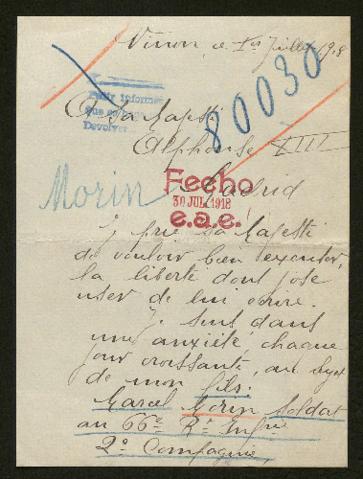 Vinon, le 1er Juillet 1918
Para informe
Devolver
80030
A Sa Majesté
Alphonse XIII
Morin
Madrid
Fecho
30 JUL 1918
e.a.e.
Je prie sa Majesté
de vouloir bien excuser,
la liberté dont jose
user de lui écrire.
Je suis dans
une anxiété, chaque
jour croissante, au sujet
de mon fils.
Marcel Morin Soldat
au 66e Rt Infrie
2e Compagnie,